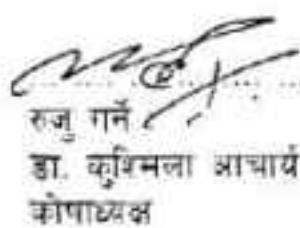 रुजु गर्ने
डा. कुश्मिला आचार्य
कोषाध्यक्ष